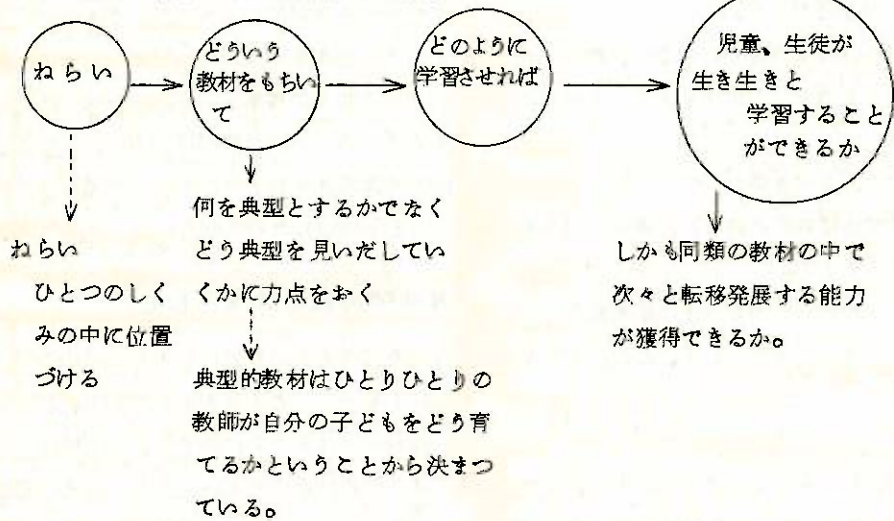 ねらい
どういう
教材をもちい
て
どのように
学習させれば
児童、生徒が
生き生きと
学習すること
ができるか
ねらい
ひとつのしく
みの中に位置
づける
何を典型とするかでなく
どう典型を見いだしてい
くかに力点をおく
典型的教材はひとりひとりの
教師が自分の子どもをどう育
てるかということから決まつ
ている。
しかも同類の教材の中で
次々と転移発展する能力
が獲得できるか。